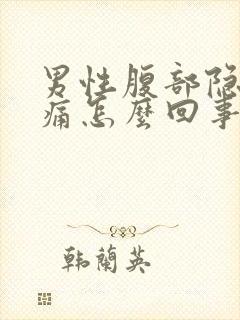 男性腹部隐
痛怎麼回事
韩蘭英